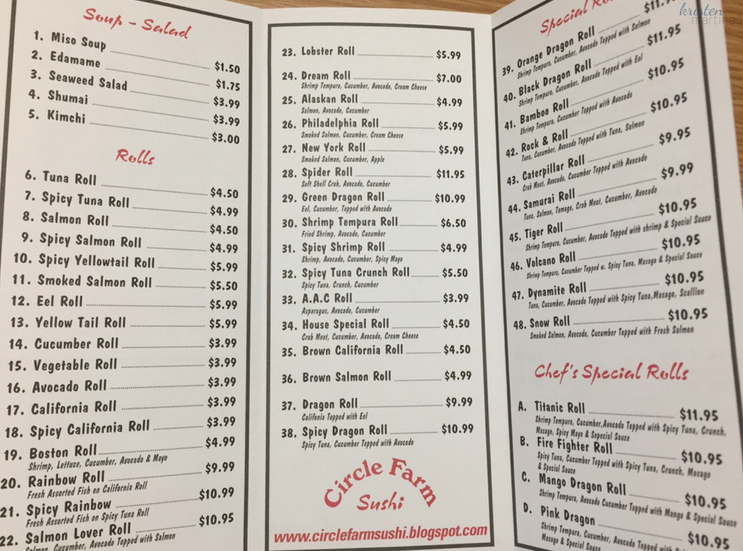 Soup - Salad
1. Miso Soup $1.50
2. Edamame $1.75
3. Seaweed Salad $3.99
4. Shumai $3.99
5. Kimchi $3.00
Rolls
6. Tuna Roll $4.50
7. Spicy Tuna Roll $4.99
8. Salmon Roll $4.50
9. Spicy Salmon Roll $4.99
10. Spicy Yellowtail Roll $5.99
11. Smoked Salmon Roll $5.50
12. Eel Roll $5.99
13. Yellow Tail Roll $5.99
14. Cucumber Roll $3.99
15. Vegetable Roll $3.99
16. Avocado Roll $3.99
17. California Roll $3.99
18. Spicy California Roll $3.99
19. Boston Roll $4.99
Shrimp, Lettuce, Cucumber, Avocado & Mayo
20. Rainbow Roll $9.99
Fresh Assorted Fish on California Roll
21. Spicy Rainbow $10.99
Fresh Assorted Fish on Spicy Tuna Roll
22. Salmon Lover Roll $10.95
Salmon, Cucumber, Avocado Topped with Salmon
23. Lobster Roll $5.99
24. Dream Roll $7.00
Shrimp Tempura, Cucumber, Avocado, Cream Cheese
25. Alaskan Roll $4.99
Salmon, Avocado, Cucumber
26. Philadelphia Roll $5.99
Smoked Salmon, Cucumber, Cream Cheese
27. New York Roll $5.99
Smoked Salmon, Cucumber, Apple
28. Spider Roll $11.95
Soft Shell Crab, Avocado, Cucumber
29. Green Dragon Roll $10.99
Eel, Cucumber, Topped with Avocado
30. Shrimp Tempura Roll $6.50
Fried Shrimp, Avocado, Cucumber
31. Spicy Shrimp Roll $4.99
Shrimp, Avocado, Cucumber, Spicy Mayo
32. Spicy Tuna Crunch Roll $5.50
Spicy Tuna, Crunch, Cucumber
33. A.A.C Roll $3.99
Asparagus, Avocado, Cucumber
34. House Special Roll $4.50
Crab Meat, Cucumber, Avocado, Cream Cheese
35. Brown California Roll $4.50
36. Brown Salmon Roll $4.99
37. Dragon Roll $9.99
California Topped with Eel
38. Spicy Dragon Roll $10.99
Spicy Tuna, Cucumber Topped with Avocado
Circle Farm
Sushi
www.circlefarmsushi.blogspot.com
kristen
Special
39. Orange Dragon Roll
Shrimp Tempura, Cucumber, Avocado Topped with Salmon
40. Black Dragon Roll $11.95
Shrimp Tempura, Cucumber, Avocado Topped with Eel
41. Bamboo Roll $10.95
Shrimp Tempura, Cucumber Topped with Avocado
42. Rock & Roll $10.95
Tuna, Cucumber, Avocado Topped with Tuna, Salmon
43. Caterpillar Roll $9.95
Crab Meat, Avocado, Cucumber Topped with Avocado
44. Samurai Roll $9.99
Tuna, Salmon, Tamago, Crab Meat, Cucumber, Avocado
45. Tiger Roll $10.95
Shrimp Tempura, Cucumber, Avocado Topped with shrimp & Special Sauce
46. Volcano Roll $10.95
Shrimp Tempura, Cucumber Topped w. Spicy Tuna, Masago & Special Sauce
47. Dynamite Roll $10.95
Tuna, Cucumber, Avocado Topped with Spicy Tuna, Masago, Scallion
48. Snow Roll $10.95
Smoked Salmon, Avocado, Cucumber Topped with Fresh Salmon
Chef's Special Rolls
A. Titanic Roll $11.95
Shrimp Tempura, Cucumber, Avocado Topped with Spicy Tuna, Crunch,
Masago, Spicy Mayo & Special Sauce
B. Fire Fighter Roll $10.95
Spicy Tuna, Cucumber Topped with Spicy Tuna, Crunch, Masago
& Special Sauce
C. Mango Dragon Roll $10.95
Shrimp Tempura, Avocado Cucumber Topped with Mango & Special Sauce
D. Pink Dragon $10.95
Shrimp Tempura, Cucumber, Avocado Topped with
Masago & Special Sauce